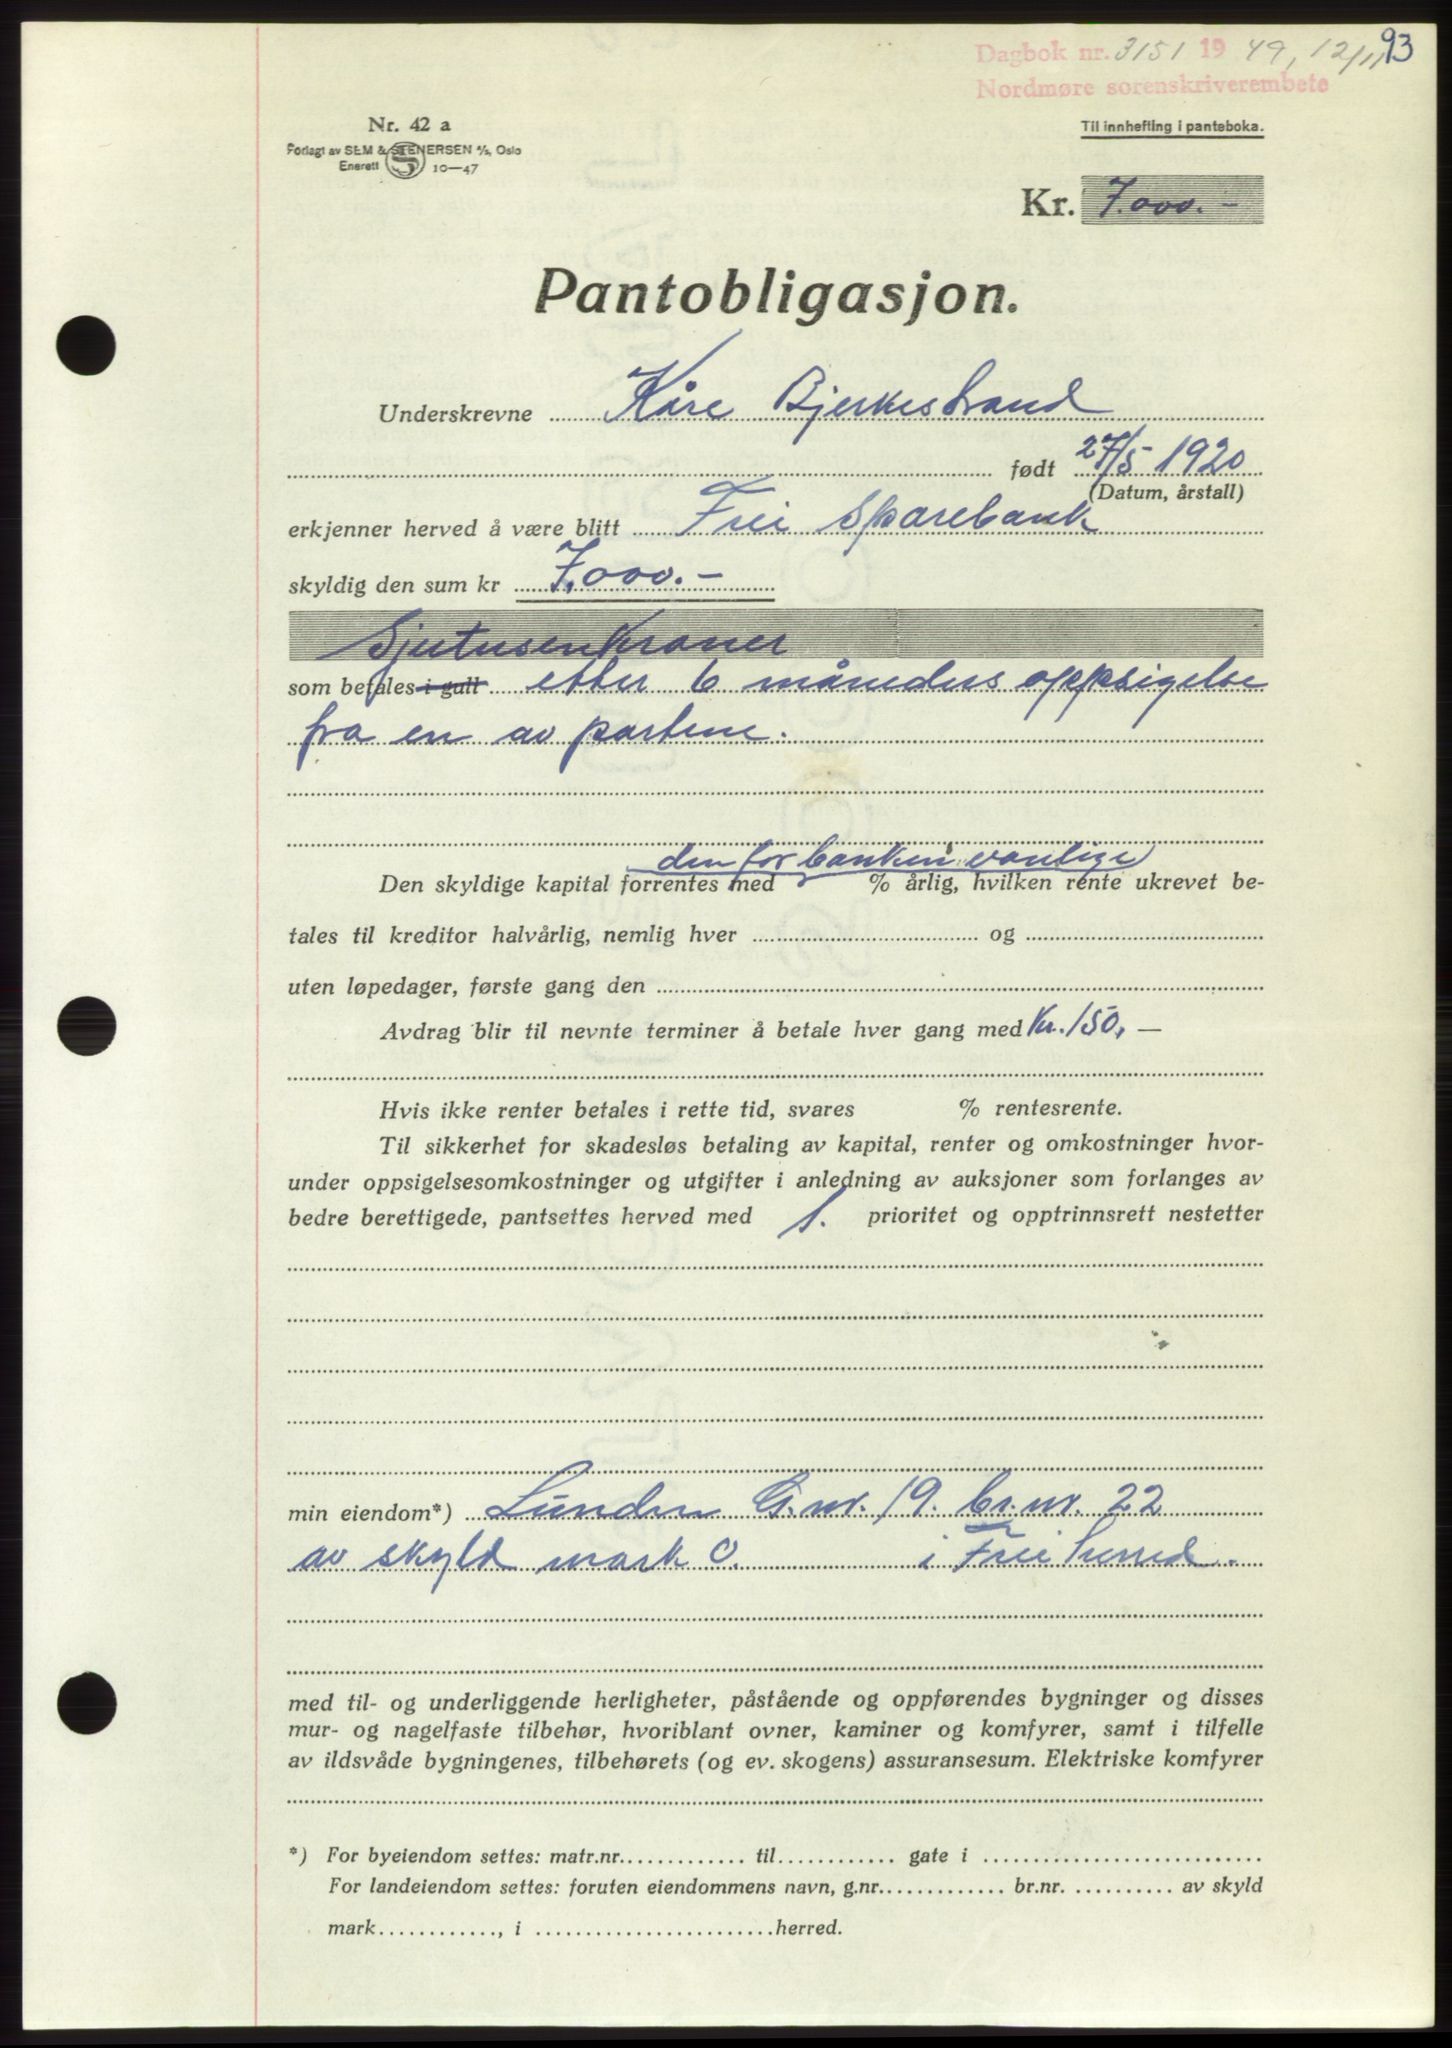 93
Dagbok nr. 3151 19 49, 12/11
Nordmøre sorenskriverembete
Nr. 42 a
Til innhefting i panteboka.
Forlagt av SEM & STENERSEN A/S, Oslo
Enerett S 10—47
Kr. 7.000.-
Pantobligasjon.
Underskrevne Kåre Bjerkestrand
født 27/5 1920
(Datum, årstall)
erkjenner herved å være blitt Frei Sparebank
skyldig den sum kr 7.000.-
Sjutusenkroner
som betales i gull etter 6 måneders oppsigelse
fra en av partene.
den for banken vanlige
Den skyldige kapital forrentes med % årlig, hvilken rente ukrevet be-
tales til kreditor halvårlig, nemlig hver og
uten løpedager, første gang den
Avdrag blir til nevnte terminer å betale hver gang med Kr. 150,—
Hvis ikke renter betales i rette tid, svares % rentesrente.
Til sikkerhet for skadesløs betaling av kapital, renter og omkostninger hvor-
under oppsigelsesomkostninger og utgifter i anledning av auksjoner som forlanges av
bedre berettigede, pantsettes herved med 1. prioritet og opptrinnsrett nestetter
min eiendom*) Lunden G.nr. 19. br.nr. 22
av skyld mark 0. i Frei herred.
med til- og underliggende herligheter, påstående og oppførendes bygninger og disses
mur- og nagelfaste tilbehør, hvoriblant ovner, kaminer og komfyrer, samt i tilfelle
av ildsvåde bygningenes, tilbehørets (og ev. skogens) assuransesum. Elektriske komfyrer
*) For byeiendom settes: matr.nr. til gate i
For landeiendom settes: foruten eiendommens navn, g.nr. br.nr. av skyld
mark , i herred.